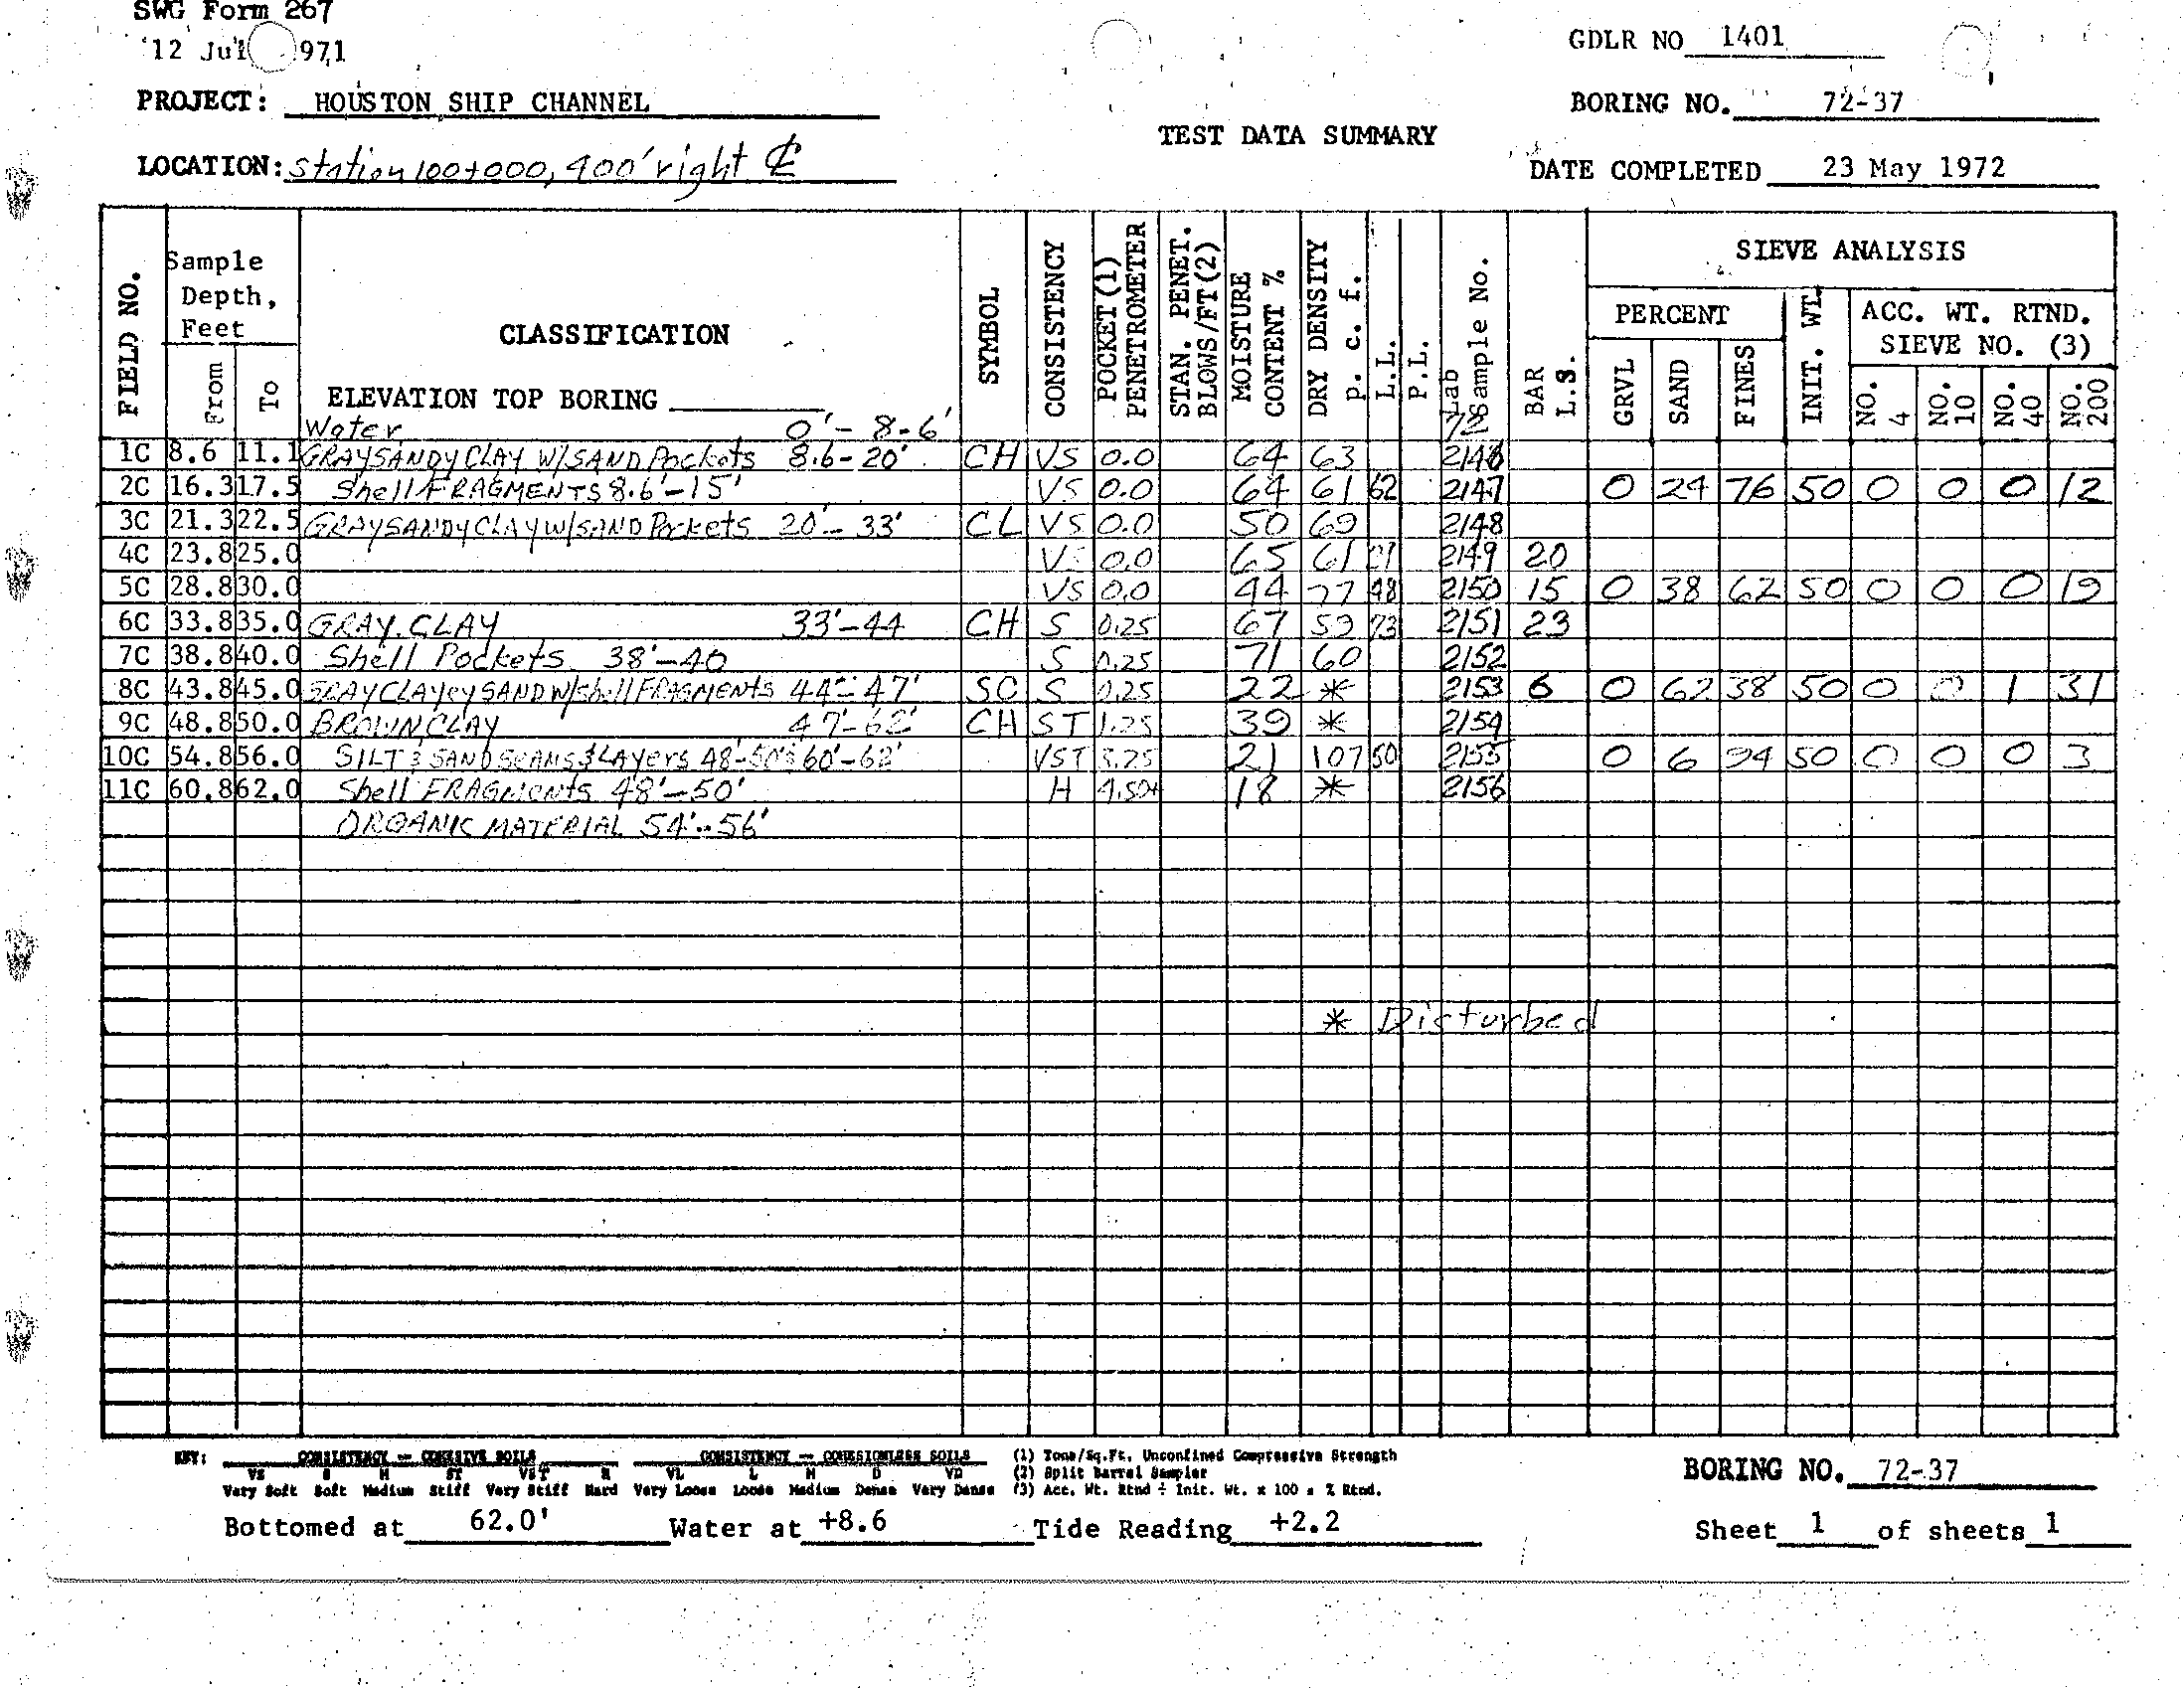 SWG Form 267
12 Jul 971
GDLR NO 1401
PROJECT: HOUSTON SHIP CHANNEL
BORING NO. 72-37
TEST DATA SUMMARY
LOCATION: Station 100+000, 400' right ℄
DATE COMPLETED 23 May 1972
FIELD NO.
Sample Depth, Feet
From
To
CLASSIFICATION
ELEVATION TOP BORING
SYMBOL
CONSISTENCY
POCKET (1) PENETROMETER
STAN. PENET. BLOWS/FT (2)
MOISTURE CONTENT %
DRY DENSITY p. c. f.
L.L.
P.L.
Lab Sample No.
72
BAR L.S.
SIEVE ANALYSIS
PERCENT
GRVL
SAND
FINES
INIT. WT.
ACC. WT. RTND. SIEVE NO. (3)
NO. 4
NO. 10
NO. 40
NO. 200
Water 0'- 8.6'
1C 8.6 11.1 GRAY SANDY CLAY W/SAND Pockets 8.6-20' CH VS 0.0 64 63 2146
2C 16.3 17.5 Shell FRAGMENTS 8.6'-15' VS 0.0 64 61 62 2147 0 24 76 50 0 0 0 12
3C 21.3 22.5 GRAY SANDY CLAY W/SAND Pockets 20'- 33' CL VS 0.0 50 69 2148
4C 23.8 25.0 0.0 65 61 2149 20
5C 28.8 30.0 VS 0.0 44 77 48 2150 15 0 38 62 50 0 0 0 19
6C 33.8 35.0 GRAY CLAY 33'-44 CH S 0.25 67 59 73 2151 23
7C 38.8 40.0 Shell Pockets 38'-40 S 0.25 71 60 2152
8C 43.8 45.0 GRAY CLAYEY SAND W/shell FRAGMENTS 44'-47' SC S 0.25 22 * 2153 6 0 62 38 50 0 0 1 31
9C 48.8 50.0 BROWN CLAY 47'-62' CH ST 1.25 39 * 2154
10C 54.8 56.0 SILT & SAND SEAMS & LAYERS 48'-50' & 60'-62' VST 3.25 21 107 50 2155 0 6 94 50 0 0 0 3
11C 60.8 62.0 Shell FRAGMENTS 48'-50' H 4.50+ 18 * 2156
ORGANIC MATERIAL 54'-56'
* Disturbed
KEY: CONSISTENCY — COHESIVE SOILS CONSISTENCY — COHESIONLESS SOILS (1) Tons/Sq.Ft. Unconfined Compressive Strength
VS S M ST VST H VL L M D VD (2) Split Barrel Sampler
Very Soft Soft Medium Stiff Very Stiff Hard Very Loose Loose Medium Dense Very Dense (3) Acc. Wt. Rtnd ÷ Init. Wt. x 100 = % Rtnd.
BORING NO. 72-37
Bottomed at 62.0' Water at +8.6 Tide Reading +2.2 Sheet 1 of sheets 1